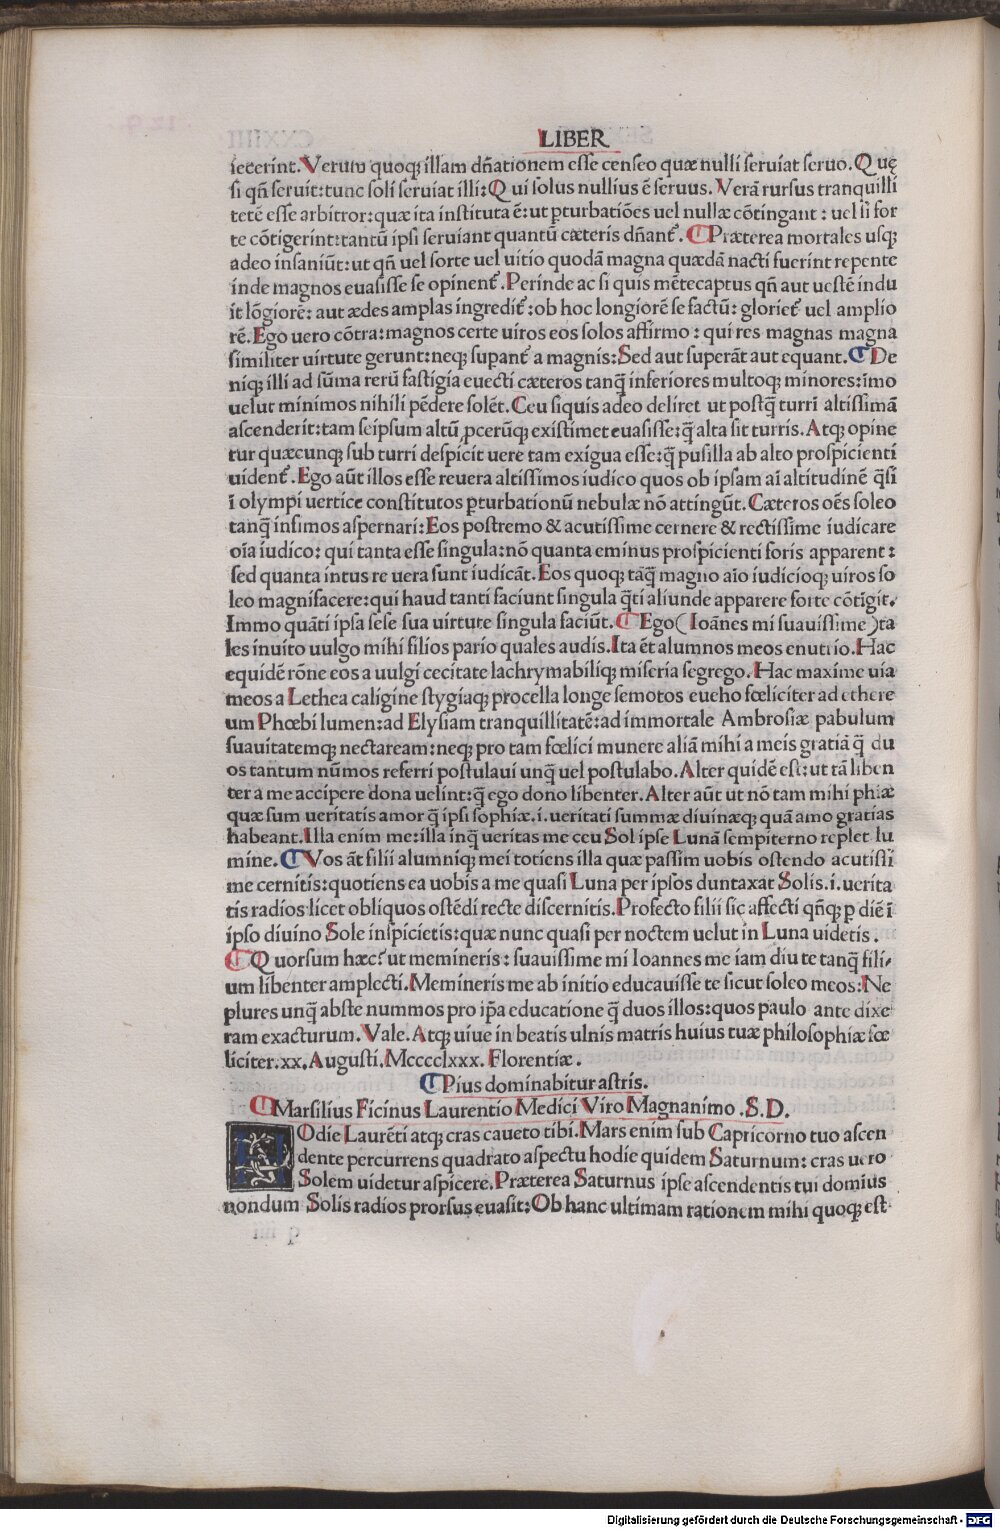 LIBER
iecerint. Verum quoq; illam dñationem esse censeo quæ nulli seruiat seruo. Quę
si qñ seruit: tunc soli seruiat illi: Qui solus nullius ē seruus. Verā rursus tranquilli
tetē esse arbitror: quæ ita instituta ē: ut ꝑturbatiōes uel nullæ cōtingant: uel si for
te cōtigerint: tantū ipsi seruiant quantū cæteris dñant᷑. ¶ Præterea mortales usq;
adeo insaniūt: ut qñ uel sorte uel uitio quodā magna quædā nacti fuerint repente
inde magnos euasisse se opinent᷑. Perinde ac si quis mētecaptus qñ aut uestē indu
it lōgiorē: aut ædes amplas ingredit᷑: ob hoc longiorē se factū: gloriet᷑ uel amplio
rē. Ego uero cōtra: magnos certe uiros eos solos affirmo: qui res magnas magna
similiter uirtute gerunt: neq; supant᷑ a magnis: Sed aut superāt aut equant. ¶ De
niq; illi ad sūma rerū fastigia euecti cæteros tanq̄ inferiores multoq; minores: imo
uelut minimos nihili pēdere solēt. Ceu siquis adeo deliret ut postq̄ turri altissimā
ascenderit: tam seipsum altū ꝓcerūq; existimet euasisse: q̄ alta sit turris. Atq; opine
tur quæcunq; sub turri despicit uere tam exigua esse: q̄ pusilla ab alto prospicienti
uident᷑. Ego aūt illos esse reuera altissimos iudico quos ob ipsam aī altitudinē q̄si
ī olympi uertice constitutos ꝑturbationū nebulæ nō attingūt. Cæteros oēs soleo
tanq̄ infimos aspernari: Eos postremo & acutissime cernere & rectissime iudicare
oīa iudico: qui tanta esse singula: nō quanta eminus prospicienti foris apparent:
sed quanta intus re uera sunt iudicāt. Eos quoq; tāq̄ magno aīo iudicioq; uiros so
leo magnifacere: qui haud tanti faciunt singula q̄ti aliunde apparere forte cōtīgit.
Immo quāti ipsa sese sua uirtute singula faciūt. ¶ Ego (Ioānes mi suauissime) ta
les inuito uulgo mihi filios pario quales audis. Ita ēt alumnos meos enutrio. Hac
equidē rōne eos a uulgi cecitate lachrymabiliq; miseria segrego. Hac maxime uia
meos a Lethea caligine stygiaq; procella longe semotos eueho fœliciter ad ethere
um Phœbi lumen: ad Elysiam tranquillitatē: ad immortale Ambrosiæ pabulum
suauitatemq; nectaream: neq; pro tam fœlici munere aliā mihi a meis gratiā q̄ du
os tantum nūmos referri postulaui unq̄ uel postulabo. Alter quidē est: ut tā liben
ter a me accipere dona uelint: q̄ ego dono libenter. Alter aūt ut nō tam mihi phiæ
quæ sum ueritatis amor q̄ ipsi sophiæ .i. ueritati summæ diuinæq; quā amo gratias
habeant. Illa enim me: illa inq̄ ueritas me ceu Sol ipse Lunā sempiterno replet lu
mine. ¶ Vos āt filii alumniq; mei totiens illa quæ passim uobis ostendo acutissi
me cernitis: quotiens ea uobis a me quasi Luna per ipsos duntaxat Solis .i. uerita
tis radios licet obliquos ostēdi recte discernitis. Profecto filii sic affecti qñq; ꝑ diē ī
ipso diuino Sole inspicietis: quæ nunc quasi per noctem uelut in Luna uidetis.
¶ Quorsum hæc? ut memineris: suauissime mi Ioannes me iam diu te tanq̄ fili-
um libenter amplecti. Memineris me ab initio educauisse te sicut soleo meos: Ne
plures unq̄ abste nummos pro ip̄a educatione q̄ duos illos: quos paulo ante dixe
ram exacturum. Vale. Atq; uiue in beatis ulnis matris huius tuæ philosophiæ fœ
liciter. xx. Augusti. Mcccclxxx. Florentiæ.
¶ Pius dominabitur astris.
¶ Marsilius Ficinus Laurentio Medici Viro Magnanimo .S.D.
HOdie Laurēti atq; cras caueto tibi. Mars enim sub Capricorno tuo ascen
dente percurrens quadrato aspectu hodie quidem Saturnum: cras uero
Solem uidetur aspicere. Præterea Saturnus ipse ascendentis tui domius
nondum Solis radios prorsus euasit: Ob hanc ultimam rationem mihi quoq; est
Digitalisierung gefördert durch die Deutsche Forschungsgemeinschaft - DFG